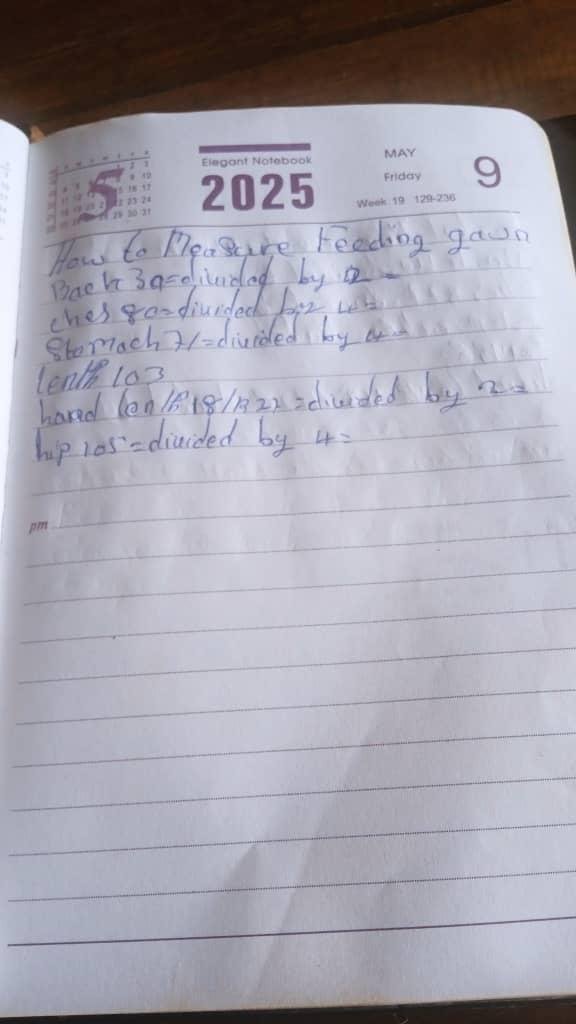 Elegant Notebook
2025
MAY
Friday
9
Week 19 129-236
5
How to Measure Feeding gawn
Back 39=divided by 2 =
ches 80=divided by 4=
Stomach 71=divided by 4=
lenth 103
hand lenth 18/R22=divided by 2=
hip 105=divided by 4=
pm